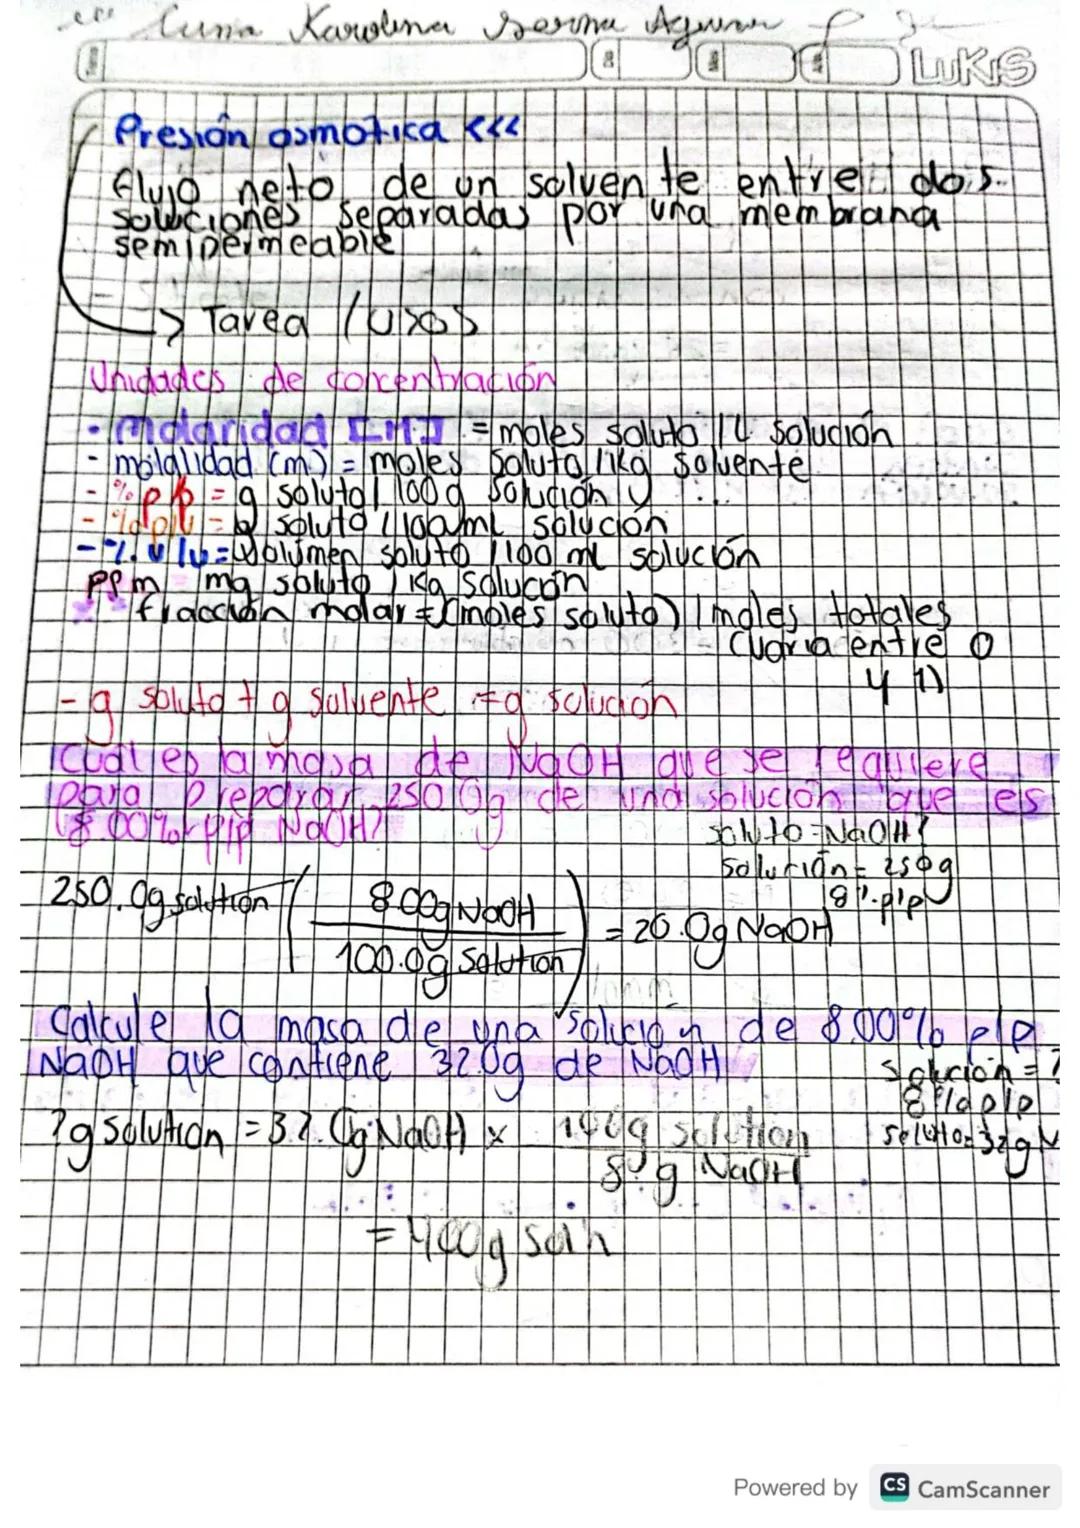 Luna Karolina Serna
LUKIS
Presión osmotica <<<
flujo neto de un solvente entre dos
soluciones separadas por una membrana
semipermeable
→ Tarea / usos
Unidades de concentración
- Molaridad [M] = moles soluto / L solución
- molalidad (m) = moles soluto / 1kg solvente
- % p/p = g soluto / 100 g solución
- % p/v = g soluto / 100 ml solución
- % v/v = volumen soluto / 100 ml solución
PPm = mg soluto / Kg solución
fracción molar = (moles soluto) / moles totales
(varia entre 0
y 1)
- g soluto + g solvente = g solución
Cuál es la masa de NaOH que se requiere
para preparar 250.0g de una solución que es
8.00% p/p NaOH?
soluto = NaOH?
solución = 250g
8%.p/p
250.0g solution ( 8.00g NaOH / 100.0g Solution ) = 20.0g NaOH
Calcule la masa de una solución de 8.00% p/p
NaOH que contiene 32.0g de NaOH
solución = ?
8% p/p
soluto = 32g N
? g Solution = 32.0g NaOH x 100g solution
8.0 g NaOH
= 400g soln
Powered by CS CamScanner